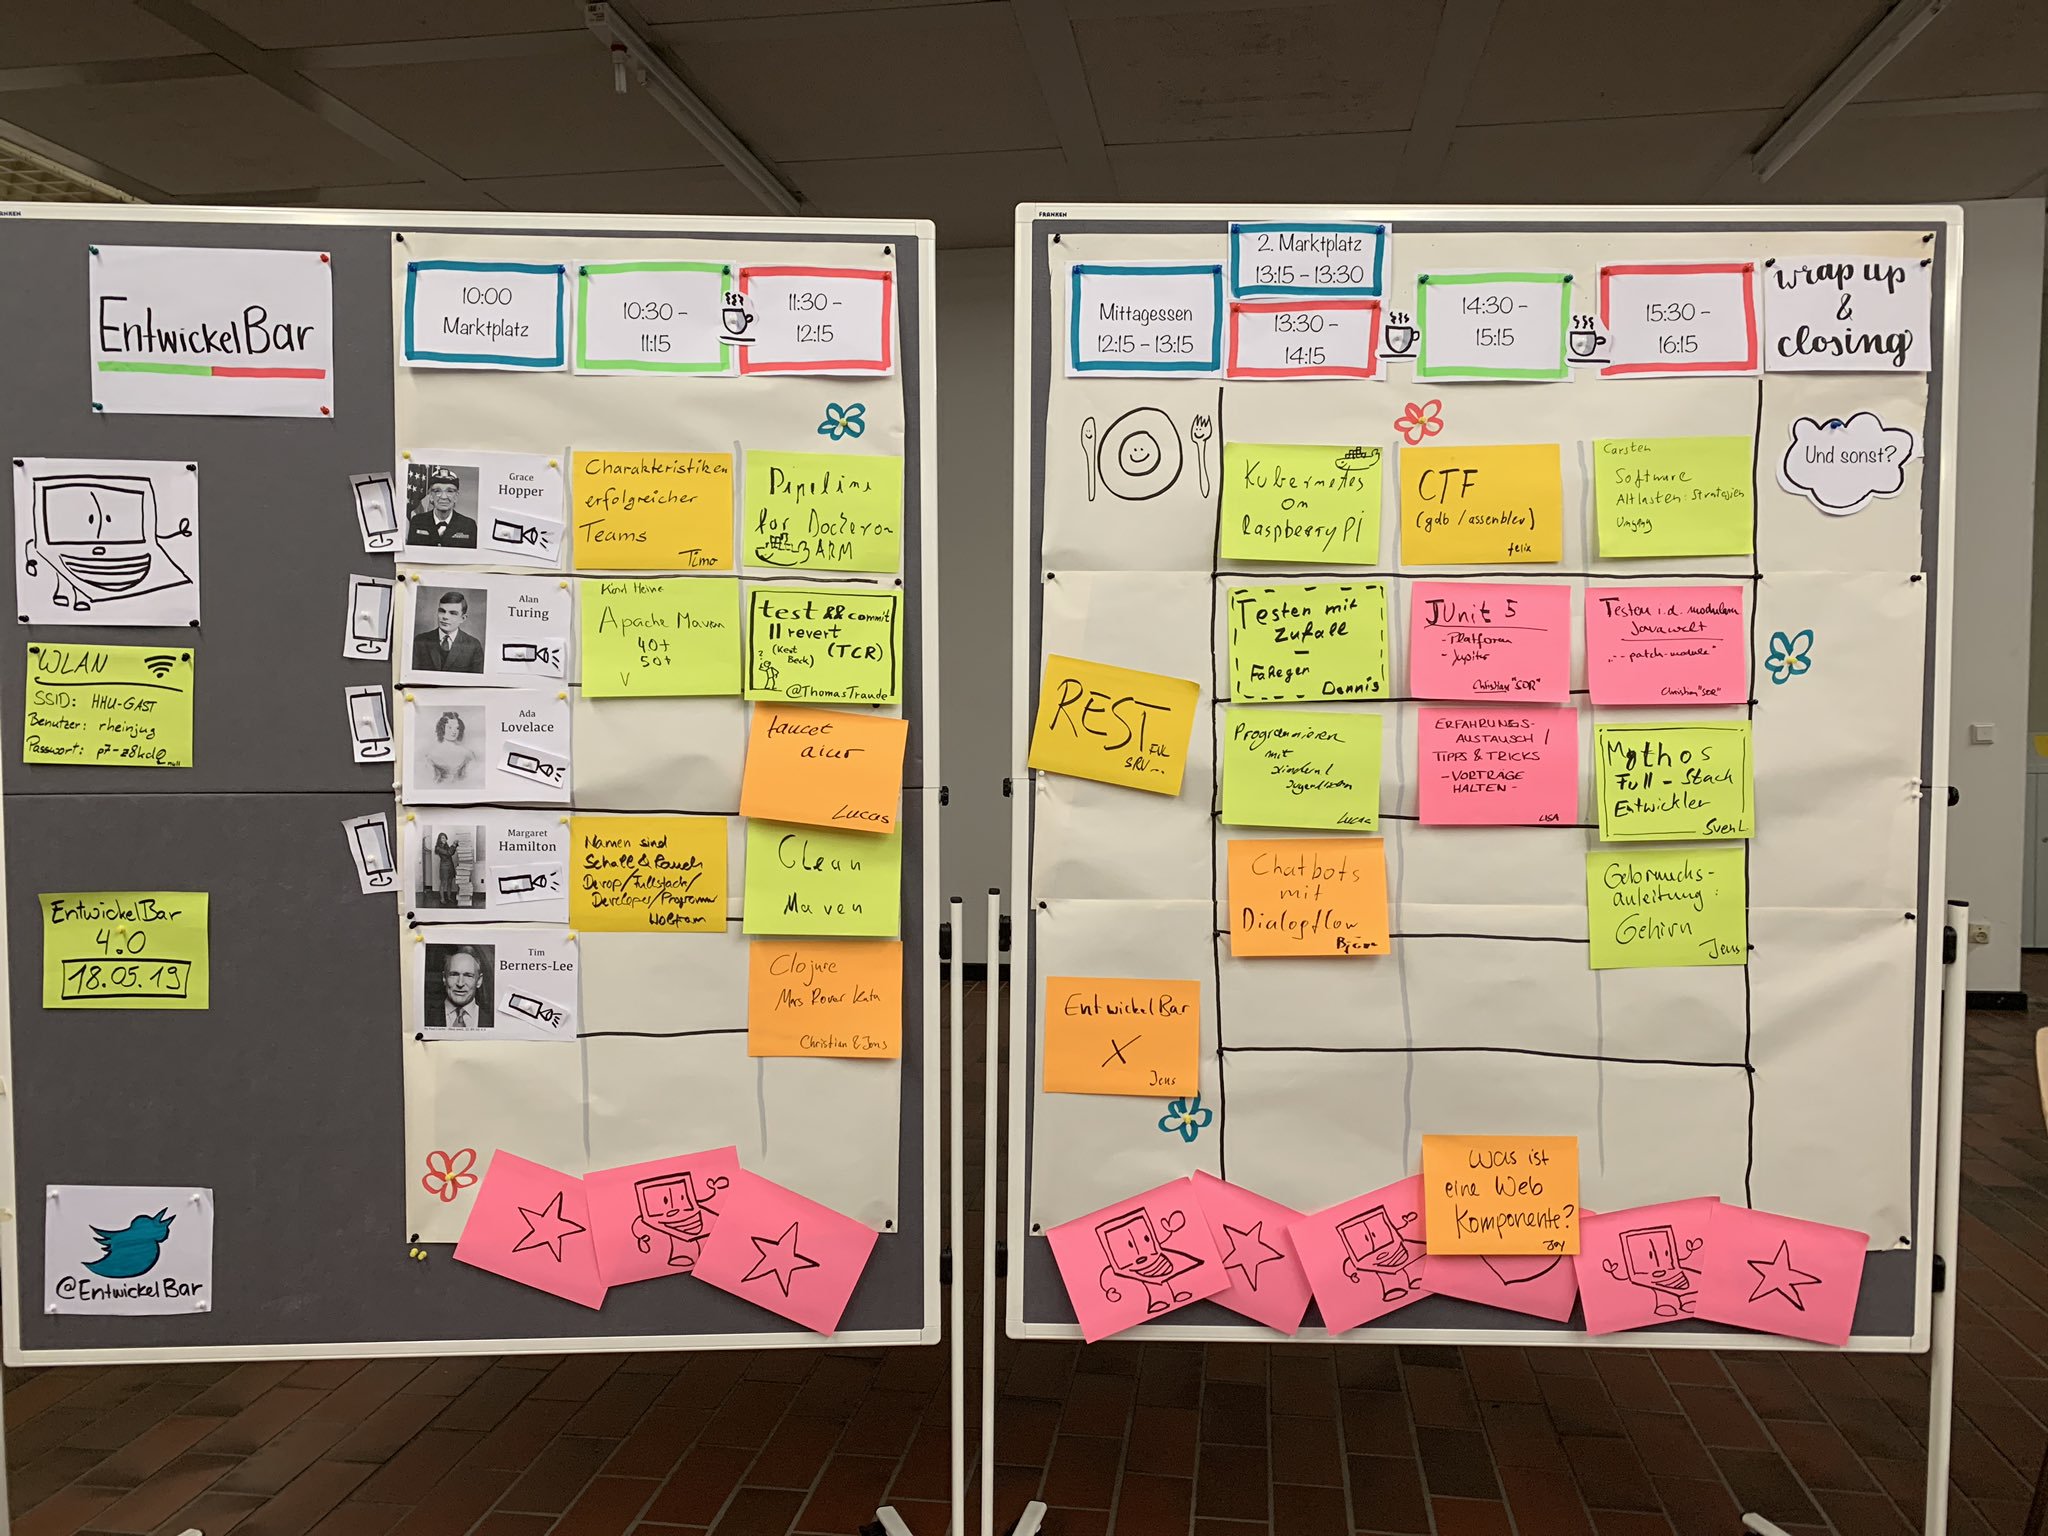 FRANKEN
EntwickelBar
WLAN
SSID: HHU-GAST
Benutzer: rheinjug
Passwort: p7-z8kd
null
EntwickelBar
4.0
18.05.19
@EntwickelBar
10:00
Marktplatz
10:30 -
11:15
11:30 -
12:15
Grace
Hopper
Charakteristiken
erfolgreicher
Teams
Timo
Pipeline
for Docker on
ARM
Alan
Turing
Karl Heinz
Apache Maven
40+
50+
test && commit
|| revert
(Kent
Beck)
(TCR)
?
@ThomasTraude
Ada
Lovelace
faucet
Lucas
Margaret
Hamilton
Namen sind
Schall & Rauch
Devop/Fullstack/
Developer/Programmer
Wolfram
Clean
Maven
Tim
Berners-Lee
Clojure
Mars Rover Kata
Christian & Jens
FRANKEN
Mittagessen
12:15 - 13:15
2. Marktplatz
13:15 - 13:30
13:30 -
14:15
14:30 -
15:15
15:30 -
16:15
wrap up
&
closing
Und sonst?
Kubernetes
on
Raspberry Pi
CTF
(gdb / assembler)
felix
Carsten
Software
Altlasten: Strategien
Umgang
Testen mit
Zufall
Dennis
JUnit 5
- Platform
- Jupiter
Christian "SOR"
Testen i.d. modularen
Javawelt
"--patch-module"
Christian "SOR"
REST
FUL
SRV...
Programmieren
mit
Kindern /
Jugendlichen
Lucas
ERFAHRUNGS-
AUSTAUSCH /
TIPPS & TRICKS
- VORTRÄGE
HALTEN -
LISA
Mythos
Full-Stack
Entwickler
Sven L.
Chatbots
mit
Dialogflow
Björn
Gebrauchs-
anleitung:
Gehirn
Jens
EntwickelBar
X
Jens
Was ist
eine Web
Komponente?
Joy